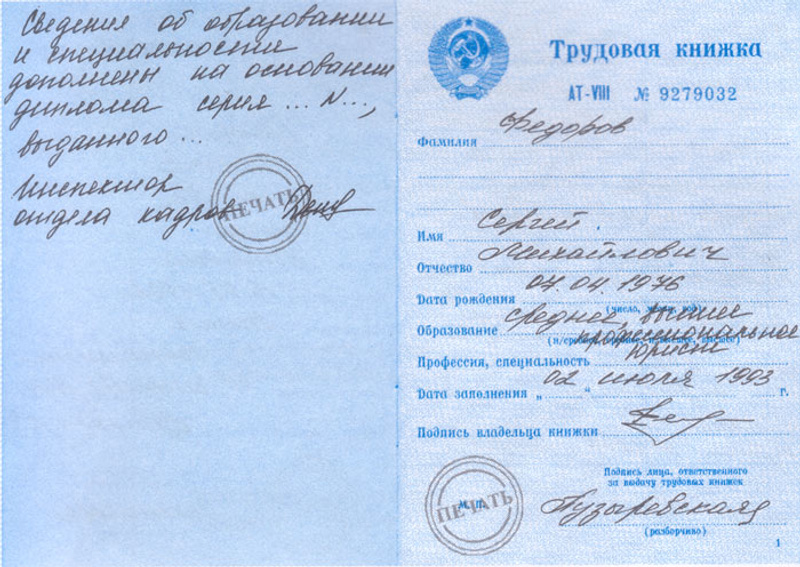 Сведения об образовании
и специальности
дополнены на основании
диплома серия ... N...,
выданного ...
Инспектор
отдела кадров
ПЕЧАТЬ
Трудовая книжка
АТ-VIII № 9279032
Фамилия Федоров
Имя Сергей
Отчество Михайлович
Дата рождения 07.04.1976
(число, месяц, год)
Образование среднее, высшее
профессиональное
Профессия, специальность юрист
Дата заполнения „02“ июля 1993 г.
Подпись владельца книжки
Подпись лица, ответственного
за выдачу трудовых книжек
М. П.
ПЕЧАТЬ
Пузыревская
(разборчиво)
1